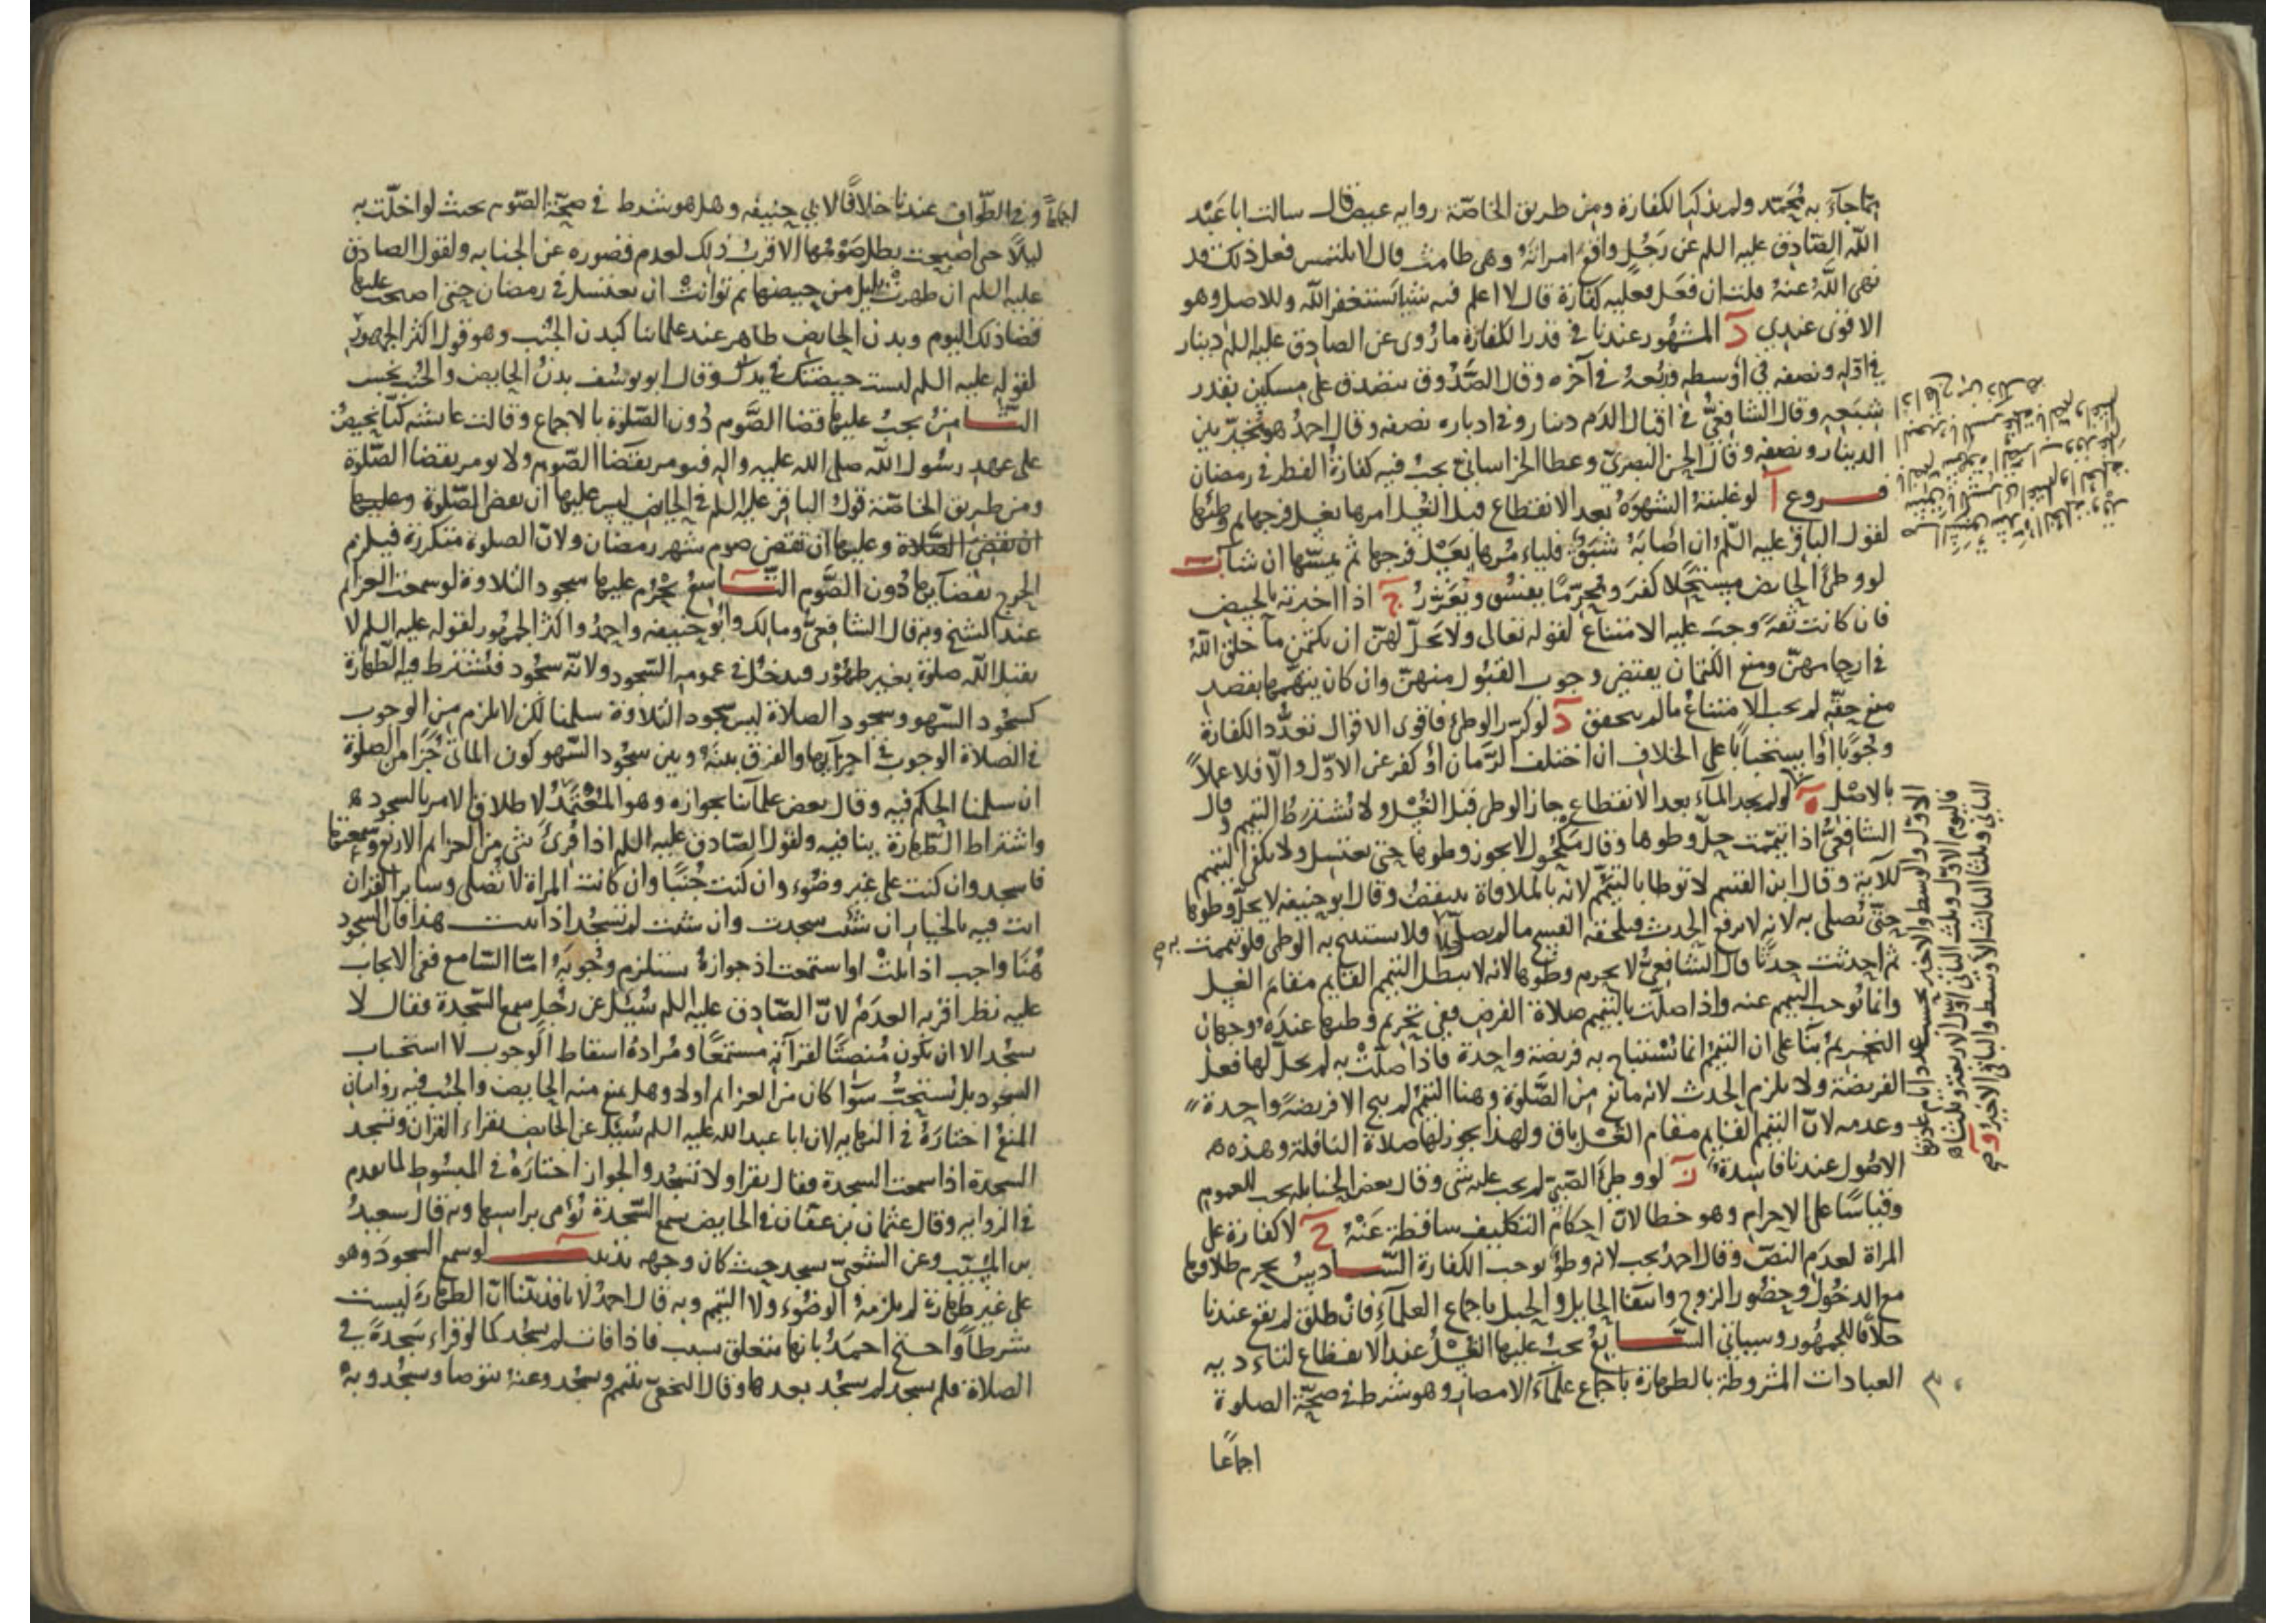 بما جاء به محمد ولم يذكر الكفارة ومن طريق الخاصة رواية عيص قال سالت ابا عبد
الله الصادق عليه السلم عن رجل واقع امراته وهى طامث قال لا يلتمس فعل ذلك قد
نهى الله عنه قلت ان فعل فعليه كفارة قال لا اعلم فيه شيا يستغفر الله وللاصل وهو
الاقوى عندي د المشهور عندنا في قدر الكفارة ما روى عن الصادق عليه السلم دينار
في اوله ونصفه في اوسطه وربعه في آخره وقال الصدوق يتصدق على مسكين بقدر
شبعه وقال الشافعي في اقبال الدم دينار وفي ادباره نصفه وقال احمد هو مخير بين
الدينار ونصفه وقال الحسن البصرى وعطا الخراساني يجب فيه كفارة الفطر في رمضان
فروع آ لو غلبته الشهوة بعد الانقطاع قبل الغسل امرها بغسل فرجها ثم وطئها
لقول الباقر عليه السلم ان اصابه شبق فليامرها بغسل فرجها ثم يمسها ان شا ب
لو وطئ الحايض مستحلا كفر ومحرما يفسق ويعزر ج اذا اخبرته بالحيض
فان كانت ثقة وجب عليه الامتناع لقوله تعالى ولا يحل لهن ان يكتمن ما خلق الله
في ارحامهن ومنع الكتمان يقتضي وجوب القبول منهن وان كان يتهمها بقصد
منع حقه لم يجب الامتناع ما لم يتحقق د لو كرر الوطئ فاقوى الاقوال تعدد الكفارة
وجوبا او استحبابا على الخلاف ان اختلف الزمان او كفر عن الاول والا فلا عملا
بالاصل ه لو لم يجد المآء بعد الانقطاع جاز الوطى قبل الغسل ولا يشترط التيمم وقال
الشافعي اذا تيممت حل وطوها وقال مكحول لا يجوز وطوها حتى تغتسل ولا يكفى التيمم
للآية وقال ابن القسم لا توطا بالتيمم لانه بالملاقاة ينتقض وقال ابو حنيفه لا يحل وطوها
حتى تصلى به لانه لا يرفع الحدث فيلحقه الفسخ ما لم يصل به فلا يستبيح به الوطى فلو تيممت
ثم احدثت حدثا قال الشافعي لا يحرم وطوها لانه لا يبطل التيمم القايم مقام الغسل
وانما يوجب التيمم عنه واذا صلت بالتيمم صلاة الفرض ففي تحريم وطيها عنده وجهان
التحريم بنا على ان التيمم انما يستباح به فريضة واحدة فاذا صلت به لم يحل لها فعل
الفريضة ولا يلزم الحدث لانه مانع من الصلوة وهنا التيمم لم يبح الا فريضة واحدة
وعدمه لان التيمم القايم مقام الغسل باق ولهذا يجوز لها صلاة النافلة وهذه
الاصول عندنا فاسدة ز لو وطئ الصبي لم يجب عليه شى وقال بعض الحنابله يجب للعموم
وقياسا على الاحرام وهو خطا لان احكام التكليف ساقطة عنه ح لا كفارة على
المراة لعدم النص وقال احمد يجب لانه وطؤ يوجب الكفارة السادس يحرم طلاقها
مع الدخول وحضور الزوج وانتفا الحايل والحبل باجماع العلمآء فان طلق لم يقع عندنا
خلافا للجمهور وسياتي السابع يجب عليها الغسل عند الانقطاع لتاديه
العبادات المشروطة بالطهارة باجماع علمآء الامصار وهو شرط في صحة الصلوة
اجماعا
اجماعا وفي الطواف عندنا خلافا لابي حنيفه وهل هو شرط في صحة الصوم بحيث لو اخلت به
ليلا حتى اصبحت بطل صومها الاقرب ذلك لعدم قصوره عن الجنابه ولقول الصادق
عليه السلم ان طهرت بليل من حيضها ثم توانت ان تغتسل في رمضان حتى اصبحت عليها
قضا ذلك اليوم وبدن الحايض طاهر عند علمائنا كبدن الجنب وهو قول اكثر الجمهور
لقوله عليه السلم ليست حيضتك في يدك وقال ابو يوسف بدن الحايض والجنب نجس
الثامن يجب عليها قضا الصوم دون الصلوة بالاجماع وقالت عايشه كنا نحيض
على عهد رسول الله صلى الله عليه واله فنومر بقضا الصوم ولا نومر بقضا الصلوة
ومن طريق الخاصة قول الباقر عليه السلم في الحايض ليس عليها ان تقضى الصلوة وعليها
ان تقضى الصلاة وعليها ان تقضى صوم شهر رمضان ولان الصلوة متكررة فيلزم
الحرج بقضآيها دون الصوم التاسع يحرم عليها سجود التلاوة لو سمعت العزايم
عند الشيخ وبه قال الشافعي ومالك وابو حنيفه واحمد واكثر الجمهور لقوله عليه السلم لا
يقبل الله صلوة بغير طهور فيدخل في عمومه السجود ولانه سجود فيشترط فيه الطهارة
كسجود السهو وسجود الصلاة ليس سجود التلاوة سلمنا لكن لا يلزم من الوجوب
في الصلاة الوجوب في اجزآيها والفرق بينه وبين سجود السهو كون الماتى جزا من الصلوة
ان سلمنا الحكم فيه وقال بعض علمآئنا بجوازه وهو المعتمد لاطلاق الامر بالسجود
واشتراط الطهارة ينافيه ولقول الصادق عليه السلم اذا قرئ شى من العزايم الاربع وسمعتها
فاسجد وان كنت على غير وضوء وان كنت جنبا وان كانت المراة لا تصلى وساير القران
انت فيه بالخيار ان شئت سجدت وان شئت لم تسجد اذا ثبت هذا فان السجود
هنا واجب اذا تلت او استمعت اذ جوازه يستلزم وجوبه اما السامع ففي الايجاب
عليه نظر اقربه العدم لان الصادق عليه السلم سئل عن رجل سمع السجدة فقال لا
يسجد الا ان يكون منصتا لقرآنه مستمعا ومراده اسقاط الوجوب لا استحباب
السجود بل يستحب سوا كان من العزايم اولا وهل يمنع منه الحايض والجنب فيه روايتان
المنع اختاره في النهايه لان ابا عبد الله عليه السلم سئل عن الحايض تقراء القران وتسجد
السجدة اذا سمعت السجدة فقال تقرا ولا تسجد والجواز اختاره في المبسوط لما تقدم
في الروايه وقال عثمان بن عفان في الحايض تسمع السجدة تؤمى براسها وبه قال سعيد
بن المسيب وعن الشعبي يسجد حيث كان وجهه تذنيب لو سمع السجود وهو
على غير طهارة لم يلزمه الوضوء ولا التيمم وبه قال احمد لانا قد بينا ان الطهارة ليست
شرطا واحتج احمد بانها تتعلق بسبب فاذا فات لم يسجد كما لو قراء سجدة في
الصلاة فلم يسجد لم يسجد بعدها وقال النخعي يتيمم ويسجد وعنه يتوضا ويسجد وبه